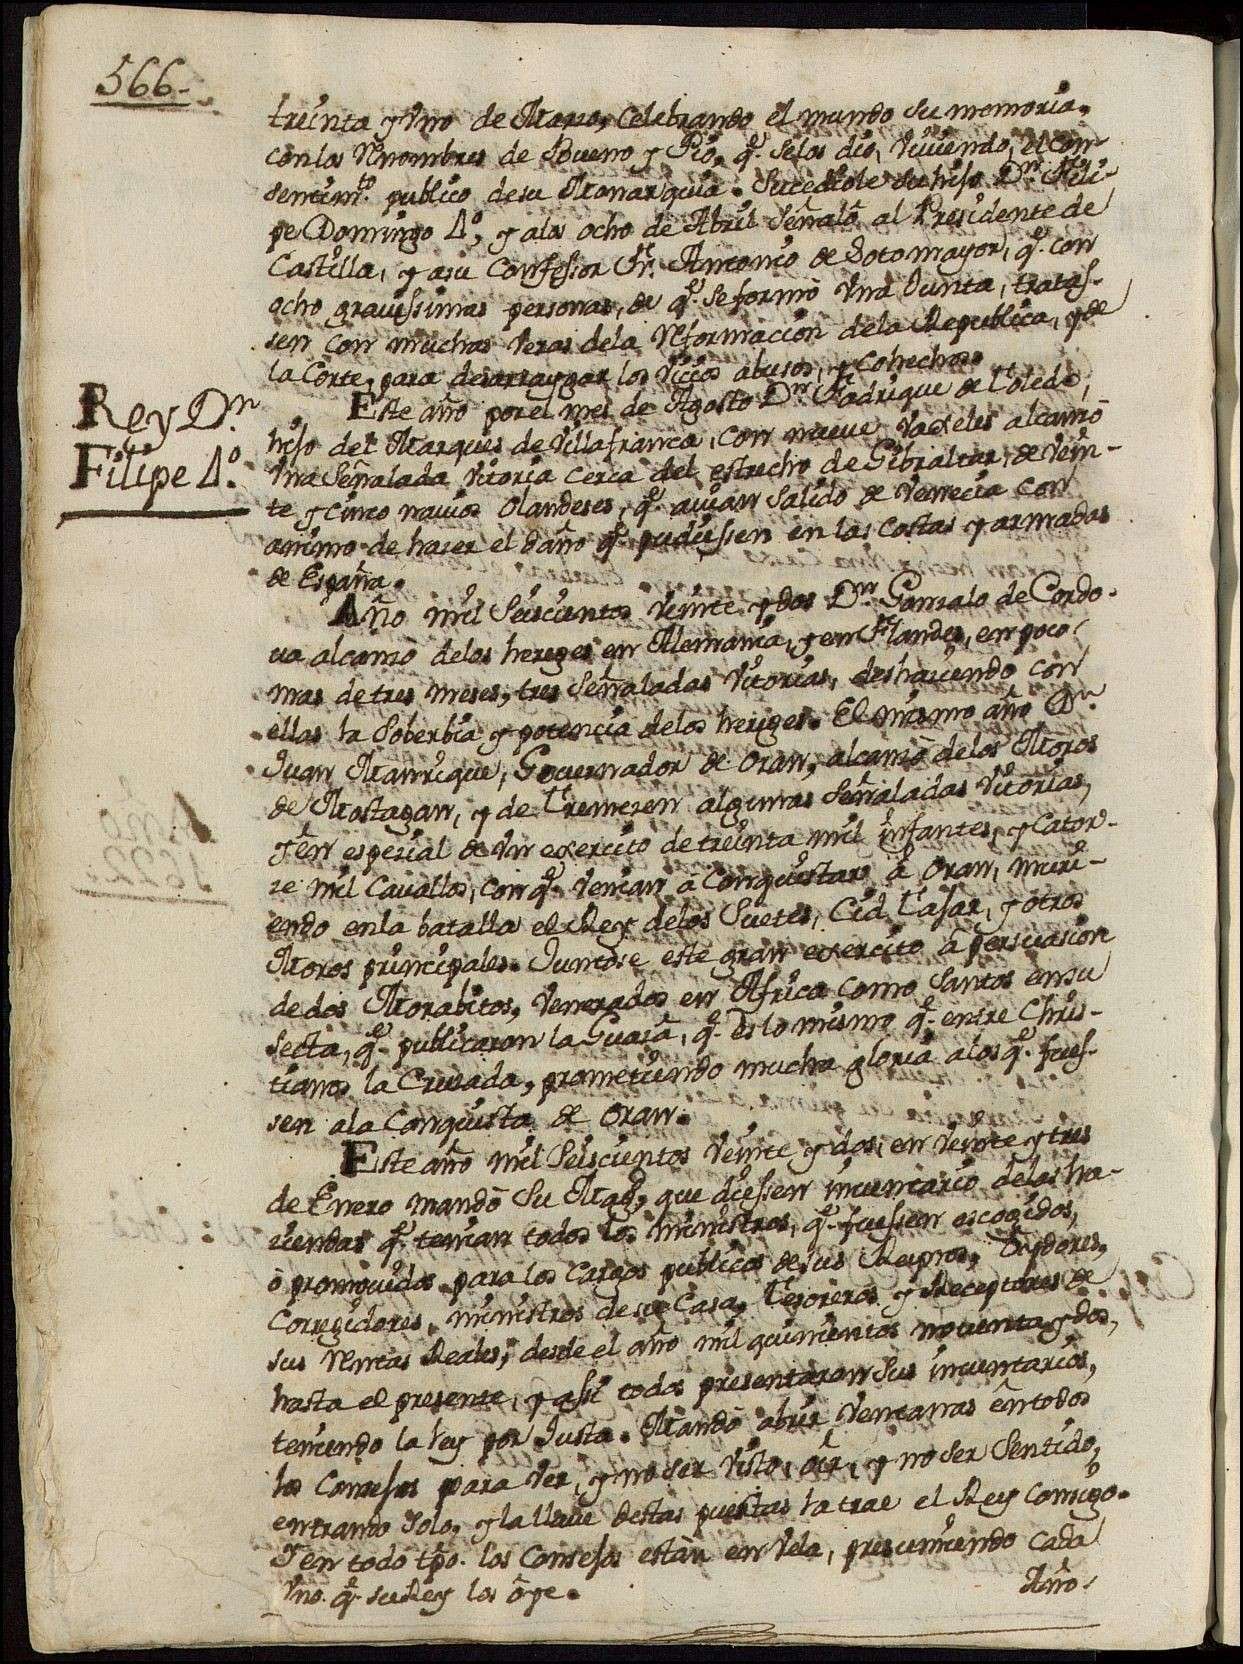 566.
treinta y Vno de Marzo, Celebrando el mundo su memoria,
con los Renombres de Bueno y Pio, q̃. se los dio, Viuiendo, el con-
sentim.to publico de su Monarquia. Sucediole su hijo D.n Fili-
pe Domingo 4.o, y a los ocho de Abril Señalò al Presidente de
Castilla, y a su Confessor Fr. Antonio de Sotomayor, q̃. con
ocho grauissimas personas, de q̃. se formò Vna Junta, tratas-
sen con muchas Veras de la Reformacion de la Republica, y de
la Corte, para desarraygar los Vicios abusos, y Cohechos.
Rey D.n
Filipe 4.o
Este año por el mes de Agosto D.n Fadrique de Toledo,
hijo del Marques de Villafranca, con nueue Vaxeles alcanzò
Vna Señalada Vitoria cerca del estrecho de Gibraltar, de Vein-
te y Cinco nauios Olandeses, q̃. auian Salido de Venecia con
animo de hazer el daño q̃. pudiessen en las Costas y armadas
de España.
Año mil Seiscientos Veinte y dos D.n Gonzalo de Cordo-
ua alcanzò de los hereges en Alemania, y en Flandes, en poco
mas de tres meses, tres Señaladas Vitorias, deshaciendo con
ellas la Soberbia y potencia de los hereges. El mismo año D.n
Juan Manrique, Gouernador de Oran, alcanzò de los Moros
de Mostagan, y de Tremezen algunas Señaladas Vitorias,
y en espezial de Vn exercito de treinta mil infantes, y Cator-
ze mil Cauallos, con q̃. Venian à Conquistar à Oran, muri-
endo en la batalla el Rey de los Suetes, Cid Casar, y otros
Moros principales. Juntose este gran exercito à persuasion
de dos Morabitos, Venerados en Africa como Santos en su
Secta, q̃. publicaron la Guazà, q̃. es lo mismo q̃. entre Chris-
tianos la Cruzada, prometiendo mucha gloria a los q̃. fues-
sen a la Conquista de Oran.
Este año mil Seiscientos Veinte y dos, en Veinte y tres
de Enero mandò Su Mag.d que diessen inuentario de las ha-
ziendas q̃. tenian todos los ministros, q̃. fuessen escogidos,
ò promouidos para los Cargos publicos de sus Reynos, Oydores,
Corregidores, ministros de su Casa, Tesoreros y Receptores de
sus Rentas Reales, desde el año mil quinientos nouenta y dos,
hasta el presente, y assi todos presentaron Sus inuentarios,
teniendo la ley por Justa. Mandò abrir Ventanas en todos
los Consejos para Ver, y no ser Visto, oir, y no ser Sentido,
entrando Solo, y la llaue destas puertas la trae el Rey Consigo.
Y en todo tpo. los Consejos estàn en Vela, presumiendo Cada
Vno. q̃. su Rey los òye.
Año